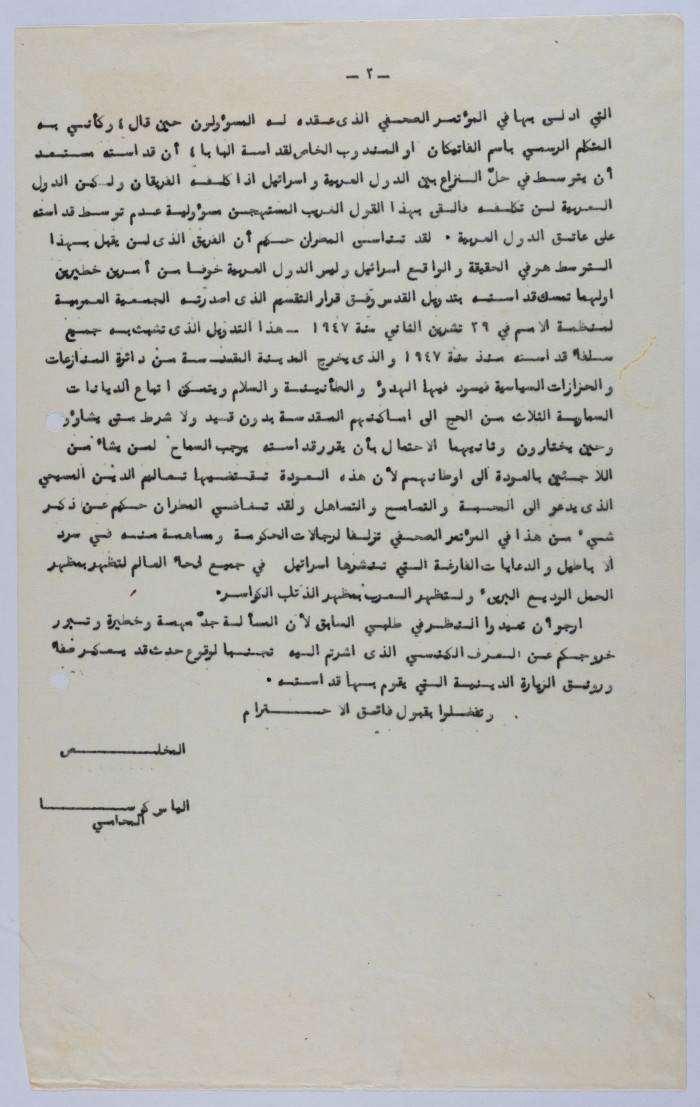 — ٢ —
التي ادلى بها في المؤتمر الصحفي الذى عقده له المسؤولون حين قال ، وكأني به
المتكلم الرسمي باسم الفاتيكان او المندوب الخاص لقداسة البابا ، أن قداسته مستعد
أن يتوسط في حلّ النزاع بين الدول العربية واسرائيل اذا كلفه الفريقان ولكن الدول
العربية لن تكلفه فالقى بهذا القول الغريب المستهجن مسؤولية عدم توسط قداسته
على عاتق الدول العربية . لقد تناسى المطران حكيم أن الفريق الذى لن يقبل بهذا
التوسط هو في الحقيقة والواقع اسرائيل وليس الدول العربية خوفا من أمرين خطيرين
اولهما تمسك قداسته بتدويل القدس وفق قرار التقسيم الذى اصدرته الجمعية العمومية
لمنظمة الامم في ٢٩ تشرين الثاني سنة ١٩٤٧ – هذا التدويل الذى تشبث به جميع
سلفاء قداسته منذ سنة ١٩٤٧ والذى يخرج المدينة المقدسة من دائرة المنازعات
والحزازات السياسية فيسود فيها الهدوء والطأنينة والسلام ويتمكن اتباع الديانات
السماوية الثلاث من الحج الى اماكنهم المقدسة بدون قيد ولا شرط متى يشاؤون
وحين يختارون وثانيهما الاحتمال بأن يقرر قداسته يوجب السماح لمن يشاء من
اللاجئين بالعودة الى اوطانهم لأن هذه العودة تقتضيها تعاليم الدين المسيحي
الذى يدعو الى المحبة والتسامح والتساهل ولقد تغاضى المطران حكيم عن ذكر
شيء من هذا في المؤتمر الصحفي تزلفا لرجالات الحكومة ومساهمة منه في سرد
الاباطيل والدعايات الفارغة التي تنشرها اسرائيل في جميع انحاء العالم لتظهر بمظهر
الحمل الوديع البريء ولتظهر العرب بمظهر الذئاب الكواسر.
ارجو أن تعيدوا النظر في طلبي السابق لأن المسألة جدّ مهمة وخطيرة وتبرر
خروجكم عن العرف الكنسي الذى اشرتم اليه تجنبا لوقوع حدث قد يعكر صفاء
ورونق الزيارة الدينية التي يقوم بها قداسته .
وتفضلوا بقبول فائق الاحترام
المخلص
الياس كوسا
المحامي